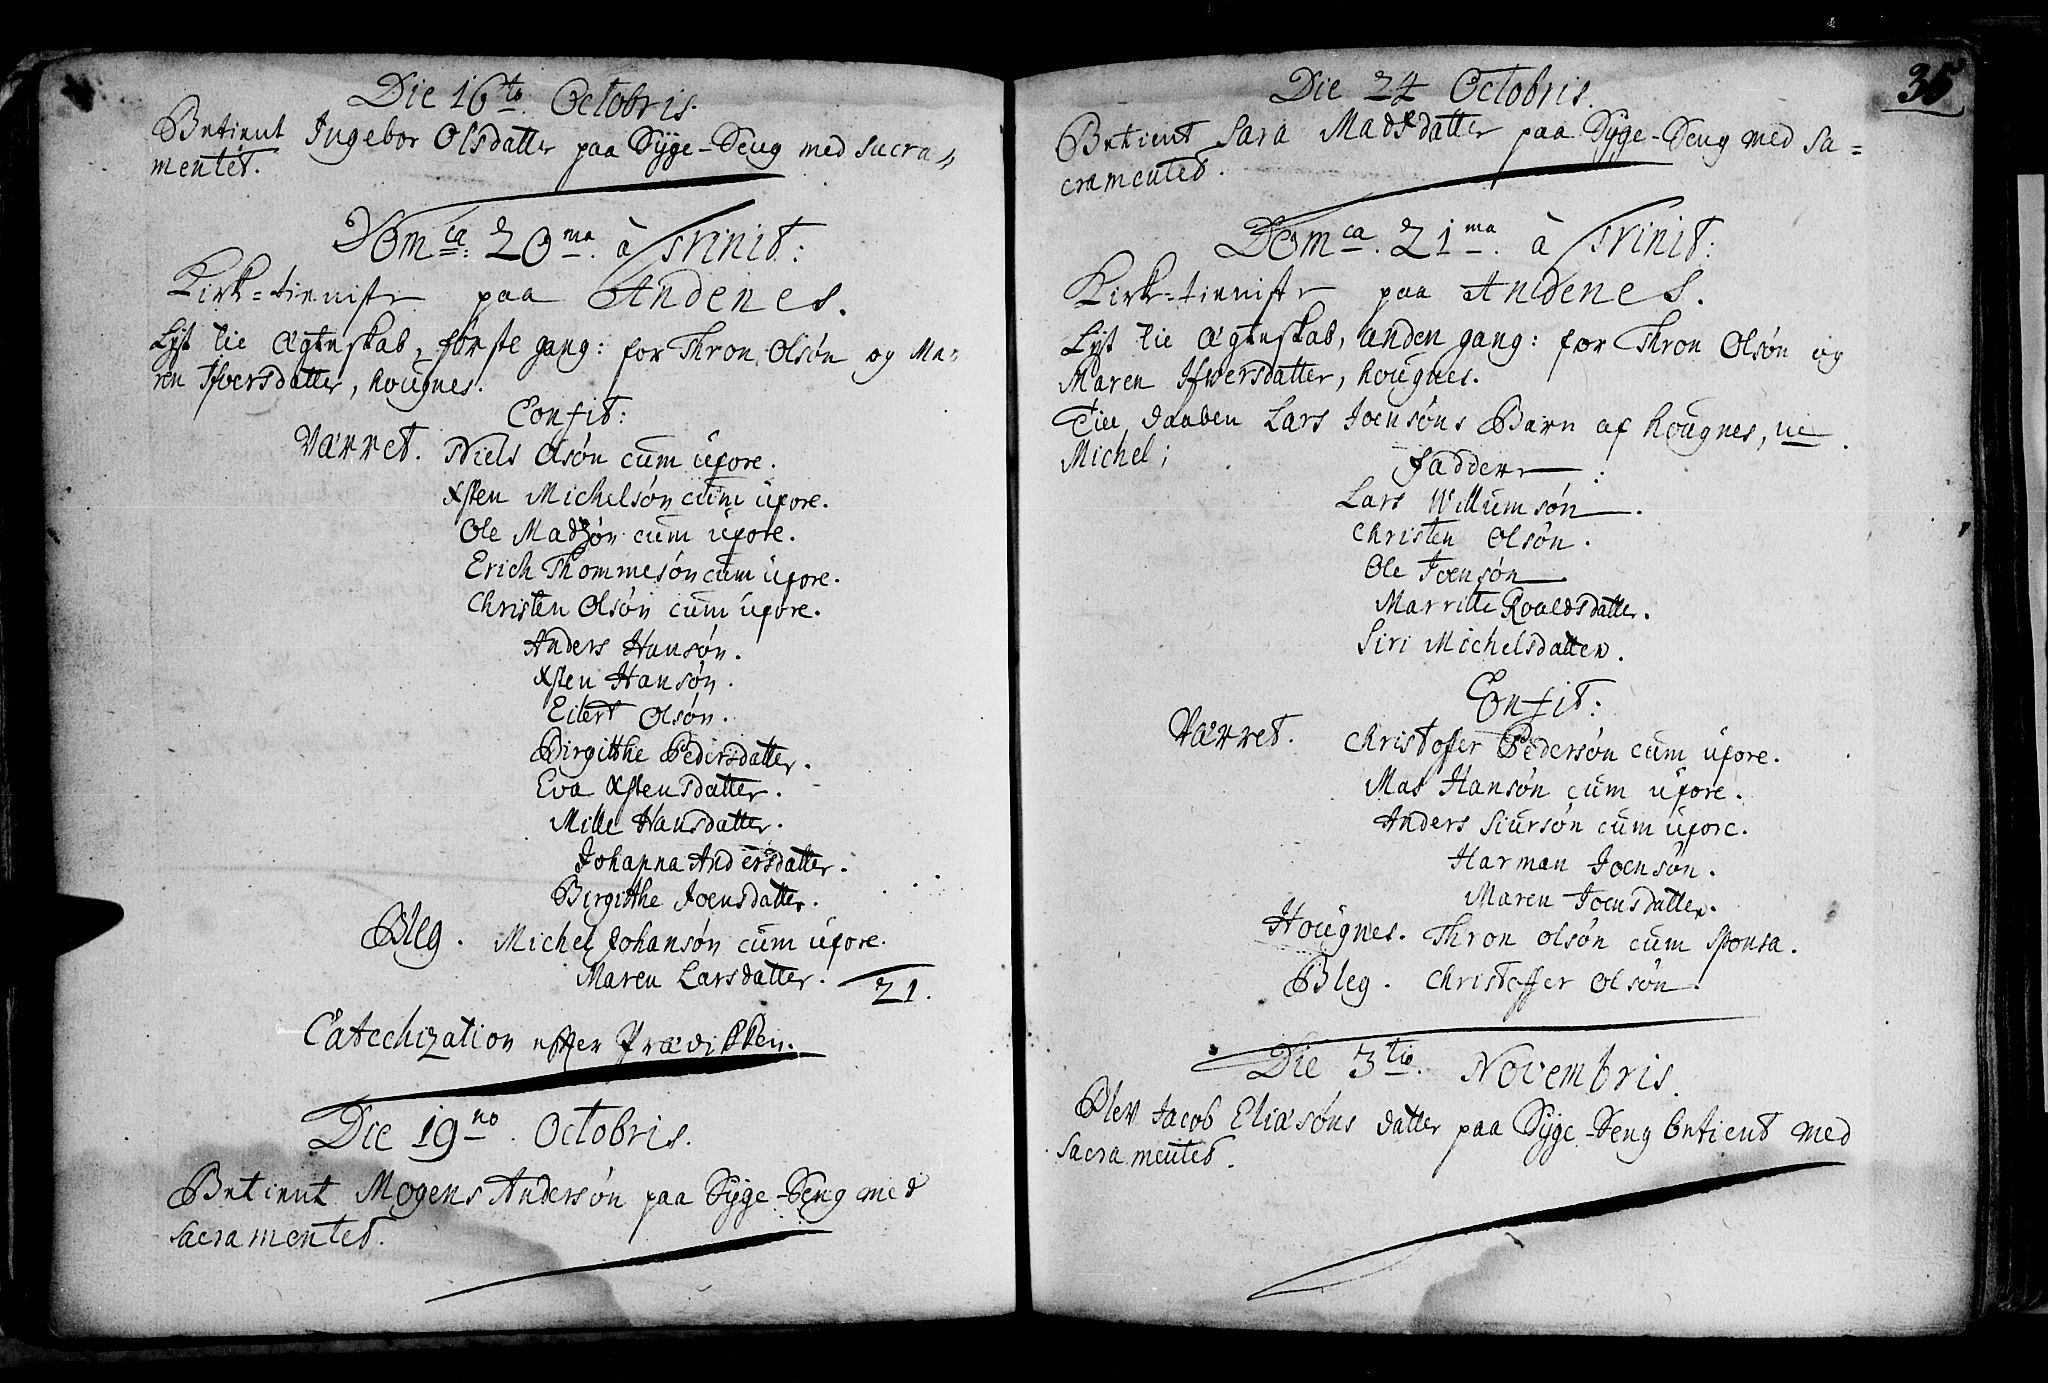 Die 16to. Octobris.
Betient Ingebor Olsdatter paa Syge-Seng med sacra=
mentet.
Domca: 20ma. à Trinit:
Kirk=tienniste paa Andenes.
Lyst till Ægteskab, første gang: for Thron Olsøn og Ma=
ren Ifversdatter, Hougnes.
Confit:
Værret. Niels Olsøn cum uxore.
Xsten Michelsøn cum uxore.
Ole Madsøn cum uxore.
Erich Thommesøn cum uxore.
Christen Olsøn cum uxore.
Anders Hansøn.
Xsten Hansøn.
Eilert Olsøn.
Birgitthe Pedersdatter.
Eva Xstensdatter.
Mille Hansdatter.
Johanna Andersdatter.
Birgitthe Joensdatter.
Bleg. Michel Johansøn cum uxore.
Maren Larsdatter. 21.
Catechization effter Prædikken.
Die 19no. Octobris.
Betient Mogens Andersøn paa Syge-Seng med
sacramentet.
35
Die 24 Octobris.
Betient Sara Madsdatter paa Syge-Seng med sa=
cramentet.
Domca. 21ma. à Trinit:
Kirk=tienniste paa Andenes.
Lyst till Ægteskab, anden gang: for Thron Olsøn og
Maren Ifversdatter, Hougnes.
Till daaben Lars Joensøns Barn af Hougnes,
Michel;
Faddere:
Lars Willumsøn.
Christen Olsøn.
Ole Joensøn.
Marritte Roaldsdatter.
Siri Michelsdatter.
Confit:
Værret. Christoffer Pedersøn cum uxore.
Mas Hansøn cum uxore.
Anders Siursøn cum uxore.
Harman Joensøn.
Maren Joensdatter.
Hougnes. Thron Olsøn cum sponsa.
Bleg. Christoffer Olsøn.
Die 3tio. Novembris.
Blev Jacob Eliasøns datter paa Syge-Seng betient med
sacramentet.